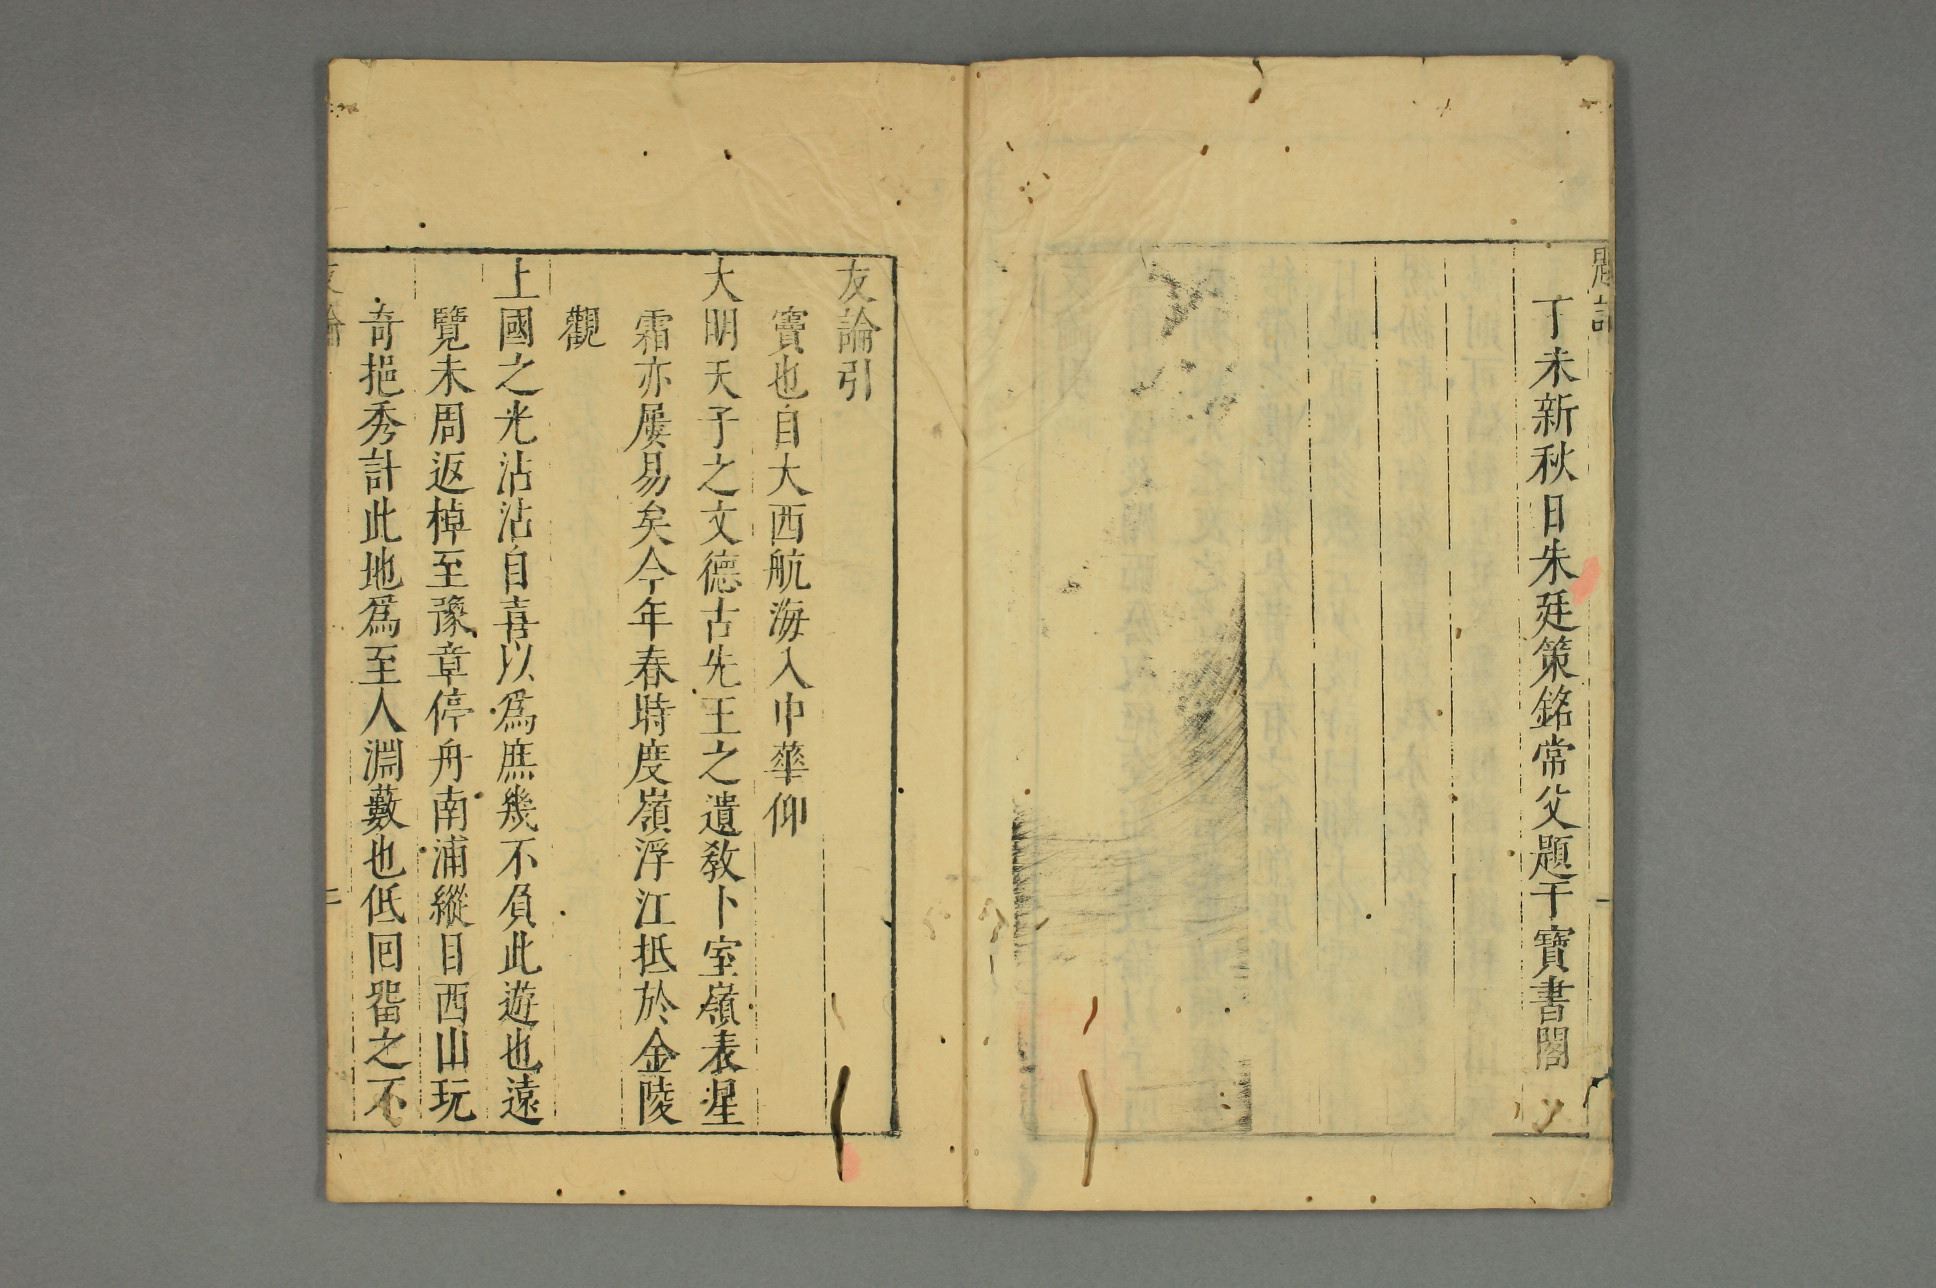 丁未新秋日朱廷策銘常父題于寶書閣
友論引
竇也自大西航海入中華仰
大明天子之文德古先王之遺敎卜室嶺表星
霜亦屢易矣今年春時度嶺浮江抵於金陵
觀
上國之光沾沾自喜以爲庶幾不負此遊也遠
覽未周返棹至豫章停舟南浦縱目西山玩
奇挹秀計此地爲至人淵藪也低回畱之不
友論